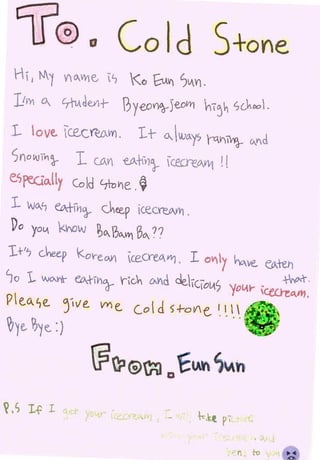 To. Cold Stone
Hi, My name is Ko Eun Sun.
I'm a student Byeongjeom high school.
I love icecream. It always raning and
Snowing I can eating icecream !!
especially cold stone.
I was eating cheep icecream.
Do you know BaBamBa??
It's cheep Korean icecream. I only have eaten that.
So I want eating rich and delicious your icecream.
Please give me cold stone !!!!
Bye Bye :)
From. Eun Sun
P.S If I get your icecream, I will take picture
with your icecream and
send to you